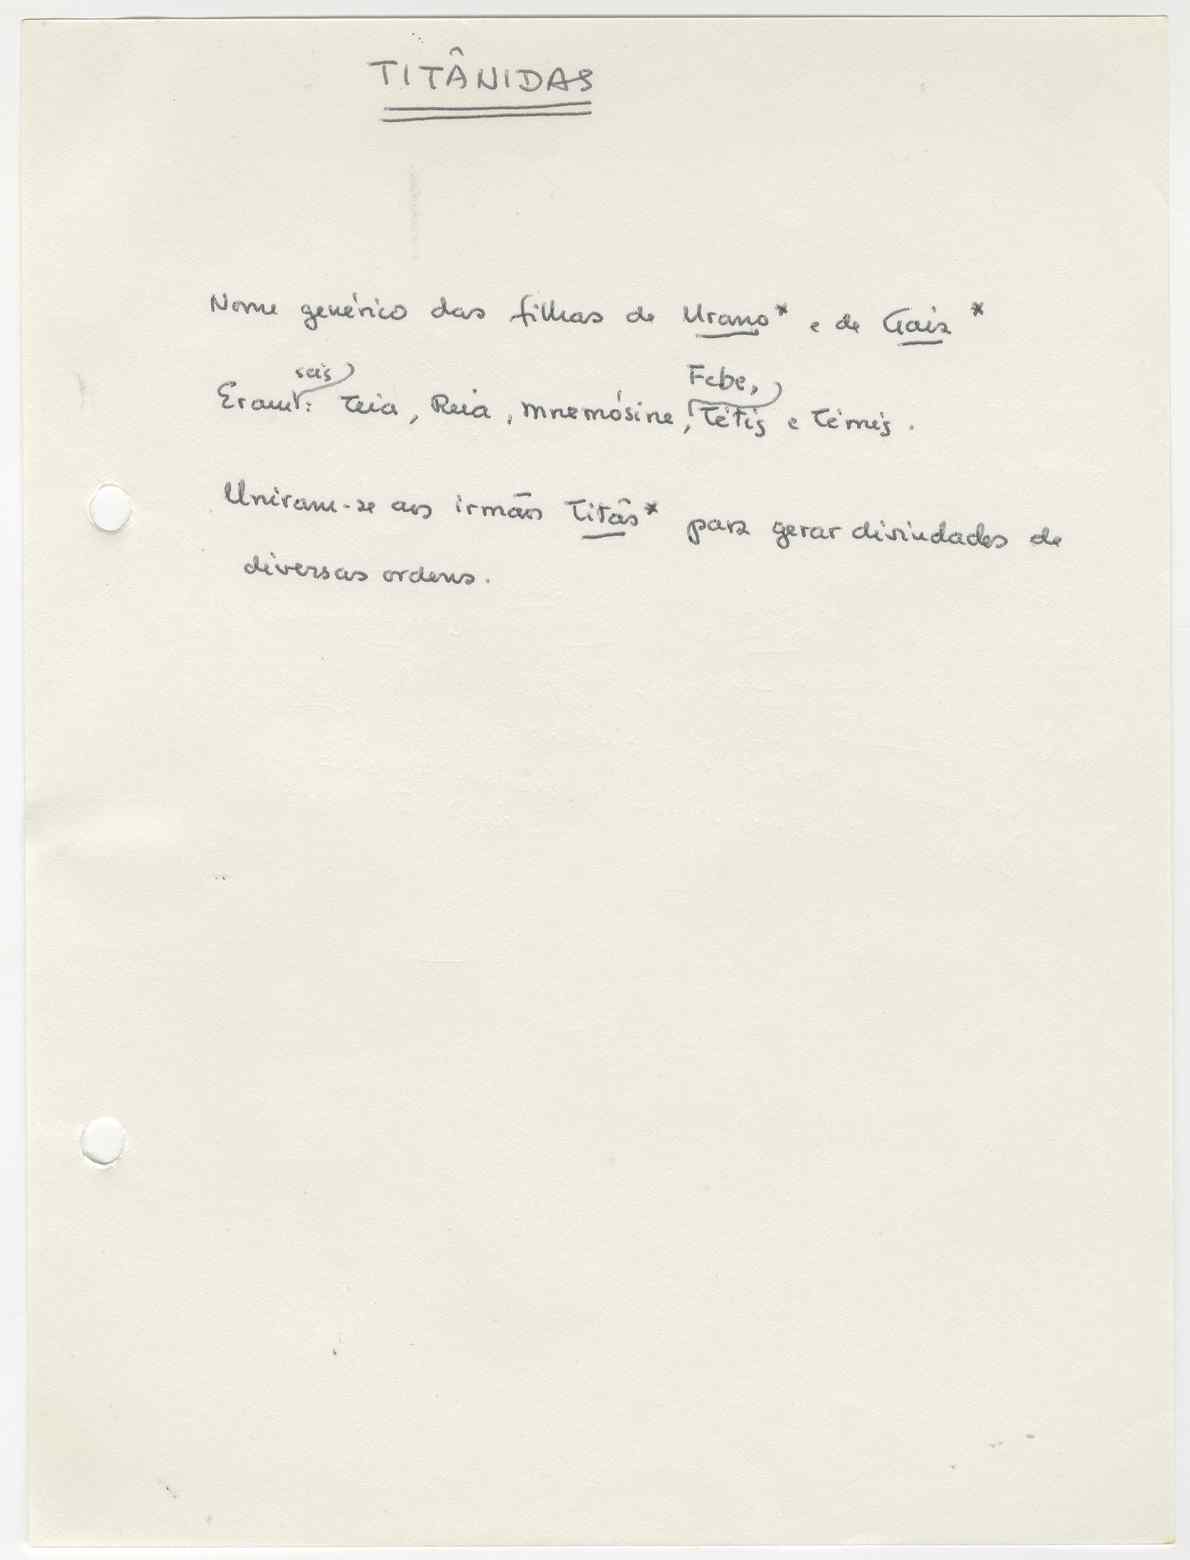 TITÂNIDAS
Nome genérico das filhas de Urano* e de Gaia *
Eram seis: Teia, Reia, mnemósine, Febe, Tétis e Témis.
Uniram-se aos irmãos Titãs* para gerar divindades de
diversas ordens.